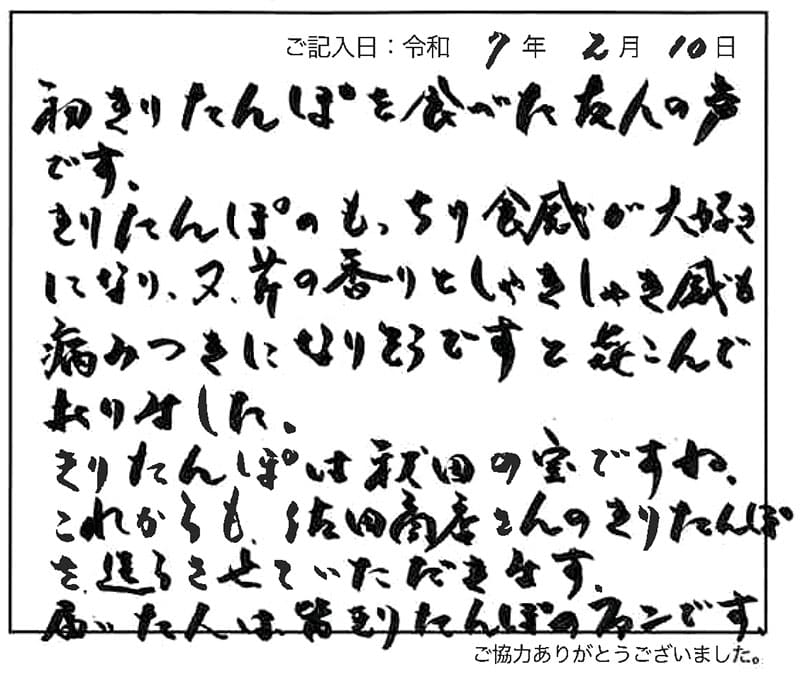 ご記入日：令和 7 年 2 月 10 日
初きりたんぽを食べた友人の声
です。
きりたんぽのもっちり食感が大好き
になり、又、芹の香りとしゃきしゃき感も
病みつきになりそうですと喜こんで
おりました。
きりたんぽは秋田の宝ですね、
これからも、佐田商店さんのきりたんぽ
を送らさせていただきます。
届いた人は皆きりたんぽのファンです。
ご協力ありがとうございました。